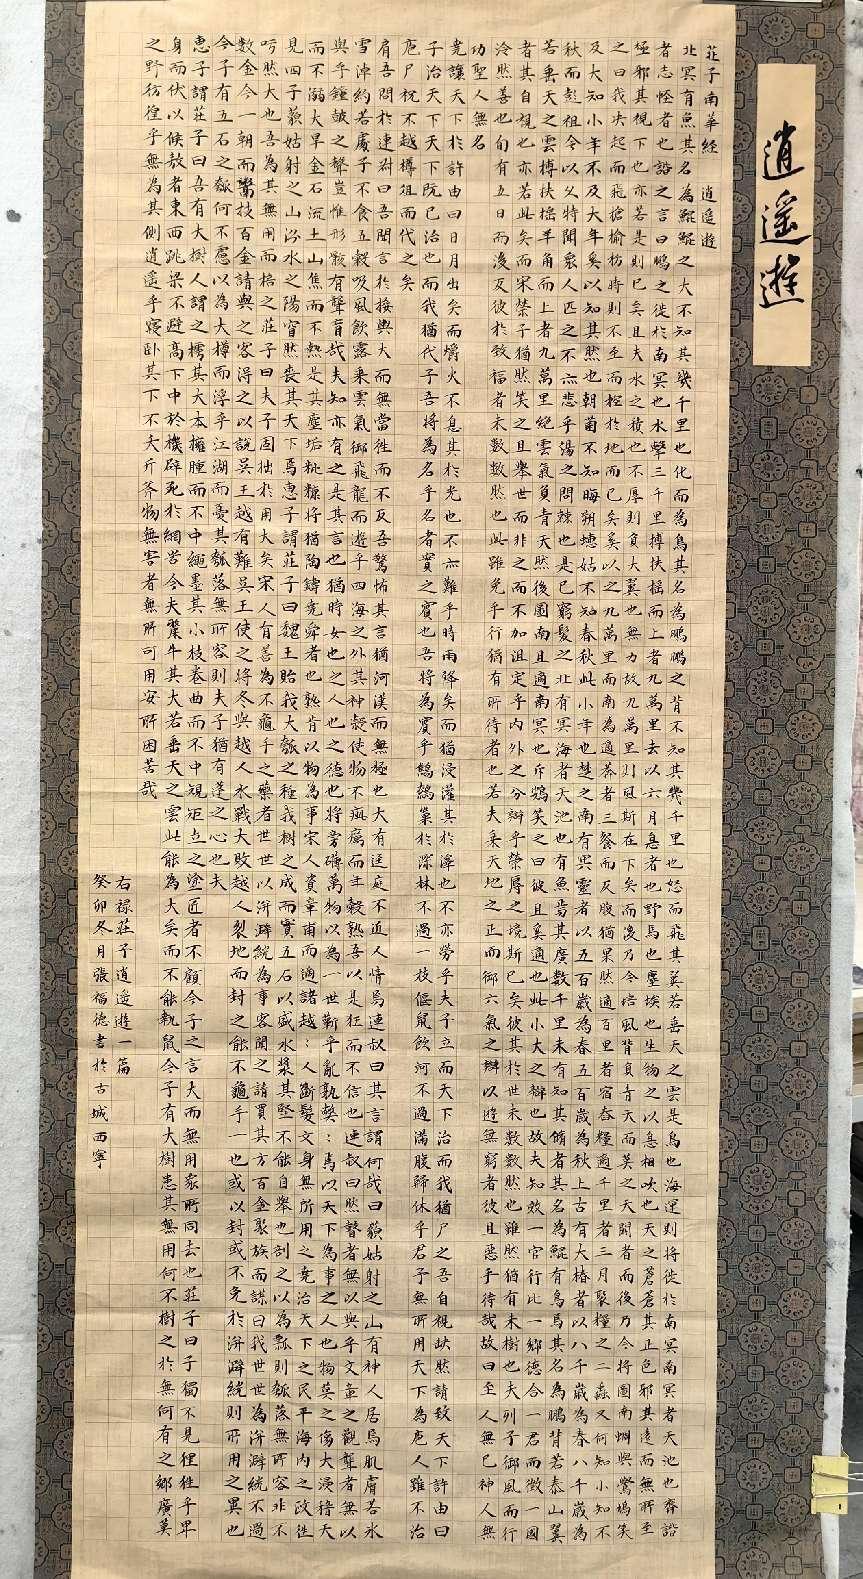 逍遥遊
莊子南華經　逍遥遊
北冥有魚其名為鯤鯤之大不知其幾千里也化而為鳥其名為鵬鵬之背不知其幾千里也怒而飛其翼若垂天之雲是鳥也海運則將徙於南冥南冥者天池也齊諧
者志怪者也諧之言曰鵬之徙於南冥也水擊三千里摶扶搖而上者九萬里去以六月息者也野馬也塵埃也生物之以息相吹也天之蒼蒼其正色邪其遠而無所至
極邪其視下也亦若是則已矣且夫水之積也不厚則負大翼也無力故九萬里則風斯在下矣而後乃今培風背負青天而莫之夭閼者而後乃今將圖南蜩與鷽鳩笑
之曰我决起而飛搶榆枋時則不至而控於地而已矣奚以之九萬里而南為適莽者三餐而反腹猶果然適百里者宿舂糧適千里者三月聚糧之二蟲又何知小知不
及大知小年不及大年奚以知其然也朝菌不知晦朔蟪蛄不知春秋此小年也楚之南有冥靈者以五百歲為春五百歲為秋上古有大椿者以八千歲為春八千歲為
秋而彭祖今以久特聞衆人匹之不亦悲乎湯之問棘也是已窮髮之北有冥海者天池也有魚焉其廣數千里未有知其脩者其名為鯤有鳥焉其名為鵬背若泰山翼
若垂天之雲摶扶搖羊角而上者九萬里絕雲氣負青天然後圖南且適南冥也斥鴳笑之曰彼且奚適也此小大之辯也故夫知效一官行比一鄉德合一君而徵一國
者其自視也亦若此矣而宋榮子猶然笑之且舉世而非之而不加沮定乎內外之分辯乎榮辱之境斯已矣彼其於世未數數然也雖然猶有未樹也夫列子御風而行
泠然善也旬有五日而後反彼於致福者未數數然也此雖免乎行猶有所待者也若夫乘天地之正而御六氣之辯以遊無窮者彼且惡乎待哉故曰至人無己神人無
功聖人無名
堯讓天下於許由曰日月出矣而爝火不息其於光也不亦難乎時雨降矣而猶浸灌其於澤也不亦勞乎夫子立而天下治而我猶尸之吾自視缺然請致天下許由曰
子治天下天下既已治也而我猶代子吾將為名乎名者實之賓也吾將為賓乎鷦鷯巢於深林不過一枝偃鼠飲河不過滿腹歸休乎君予無所用天下為庖人雖不治
庖尸祝不越樽俎而代之矣
肩吾問於連叔曰吾聞言於接輿大而無當往而不反吾驚怖其言猶河漢而無極也大有逕庭不近人情焉連叔曰其言謂何哉曰藐姑射之山有神人居焉肌膚若冰
雪淖約若處子不食五穀吸風飲露乘雲氣御飛龍而遊乎四海之外其神凝使物不疵癘而年穀熟吾以是狂而不信也連叔曰然瞽者無以與乎文章之觀聾者無以
與乎鐘鼓之聲豈惟形骸有聾盲哉夫知亦有之是其言也猶時女也之人也之德也將旁礴萬物以為一世蘄乎亂孰弊:焉以天下為事之人也物莫之傷大浸稽天
而不溺大旱金石流土山焦而不熱是其塵垢粃糠將猶陶鑄堯舜者也孰肯以物為事宋人資章甫而適諸越:人斷髮文身無所用之堯治天下之民平海內之政往
見四子藐姑射之山汾水之陽窅然喪其天下焉惠子謂莊子曰魏王貽我大瓠之種我樹之成而實五石以盛水漿其堅不能自舉也剖之以為瓢則瓠落無所容非不
呺然大也吾為其無用而掊之莊子曰夫子固拙於用大矣宋人有善為不龜手之藥者世世以洴澼絖為事客聞之請買其方百金聚族而謀曰我世世為洴澼絖不過
數金今一朝而鬻技百金請與之客得之以說吳王越有難吳王使之將冬與越人水戰大敗越人裂地而封之能不龜手一也或以封或不免於洴澼絖則所用之異也
今子有五石之瓠何不慮以為大樽而浮乎江湖而憂其瓠落無所容則夫子猶有蓬之心也夫
惠子謂莊子曰吾有大樹人謂之樗其大本擁腫而不中繩墨其小枝卷曲而不中規矩立之塗匠者不顧今子之言大而無用衆所同去也莊子曰子獨不見狸狌乎卑
身而伏以候敖者東西跳梁不避高下中於機辟死於網罟今夫斄牛其大若垂天之雲此能為大矣而不能執鼠今子有大樹患其無用何不樹之於無何有之鄉廣莫
之野彷徨乎無為其側逍遥乎寢卧其下不夭斤斧物無害者無所可用安所困苦哉
右祿莊子逍遥遊一篇
癸卯冬月張福德書於古城西寧